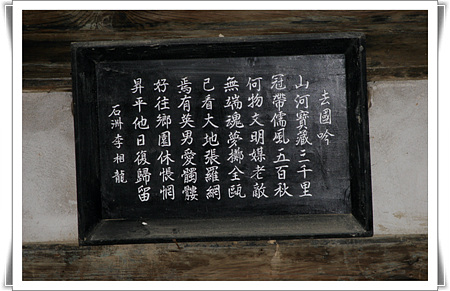 去國吟
山河寶藏三千里
冠帶儒風五百秋
何物文明媒老敵
無端魂夢擲全甌
已看大地張羅網
焉有英男愛髑髏
好往鄕園休悵惘
昇平他日復歸留
石洲 李相龍